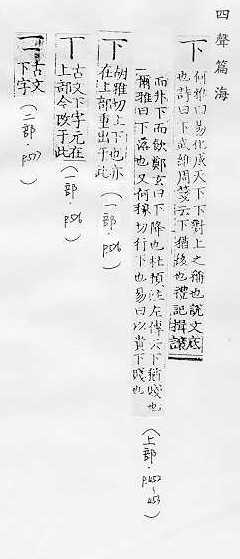 四聲篇海
下 何雅切易化成天下下對上之稱也說文底
也詩曰下武維周箋云下猶後也禮記揖讓
而升下而飲鄭玄曰下降也杜預注左傳天下猶賤也
爾雅曰下落也又何稼切行下也易曰以貴下賤也
(上部.p452~453)
下 胡雅切上下也亦
在上部重出于此
(一部.p56)
丅 古文下字元在
上部今改于此
(一部.p56)
二 古文
下字
(二部.p57)